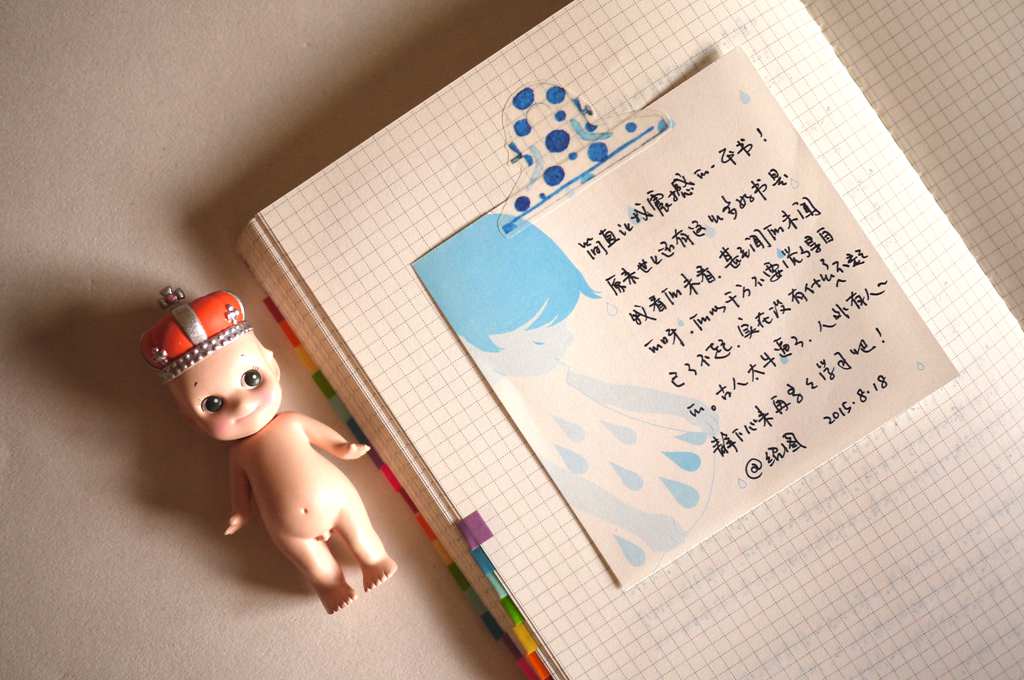 简直让我震撼的一本书！
原来世上还有这么多好书是
我看所未看，甚至闻所未闻
的呀，所以千万不要觉得自
己了不起，实在没有什么了不起
的。古人太牛逼了，人外有人~
静下心来再多多学习吧！
2015.8.18
@绍图